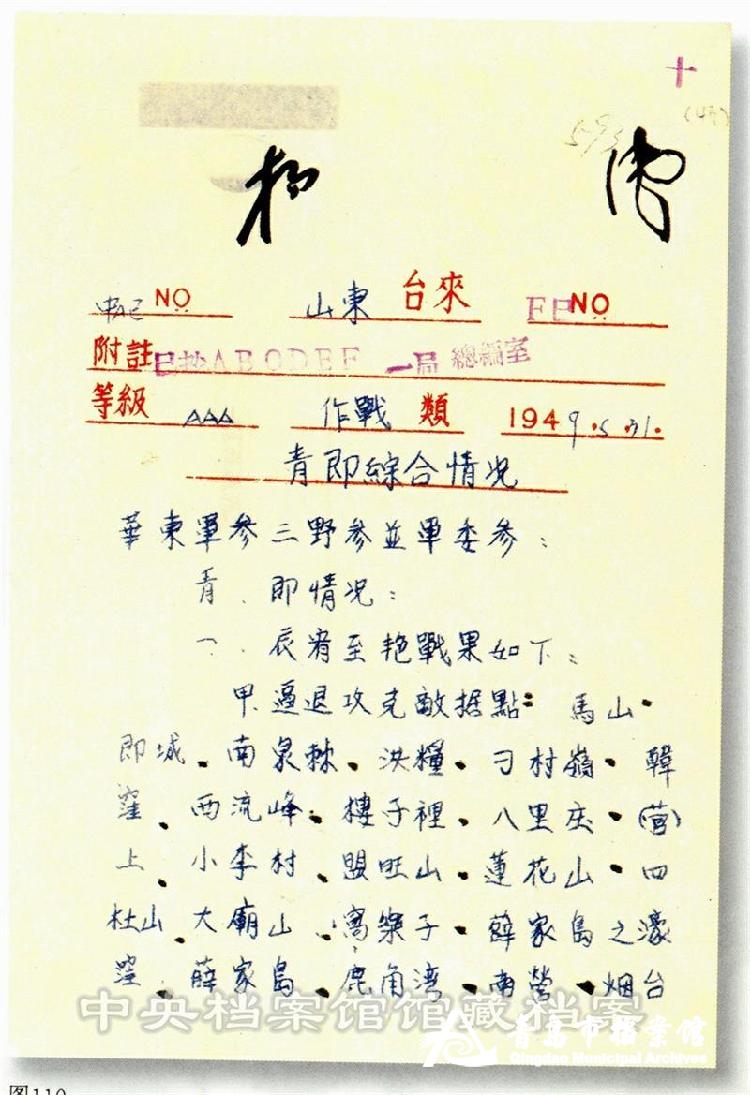 十
申 NO 山東 台來 F NO
附註 已抄ABCDEF 一局 總編室
等級 AAA 作戰 類 1949.5.31.
青即綜合情况
華東軍參三野參並軍委參:
青、即情况:
一、辰宥至艳戰果如下:
甲、逼退攻克敵据點:馬山、
即城、南泉、洪糧、刁村嶺、韓
窪、西流峰、樓子裡、八里庄、(营)
上、小李村、盟旺山、蓮花山、四
杜山、大廟山、子、薛家島之濠
窪、薛家島、鹿角湾、南營、烟台
中央档案馆馆藏档案
青島市档案馆
Qingdao Municipal Archives
图110